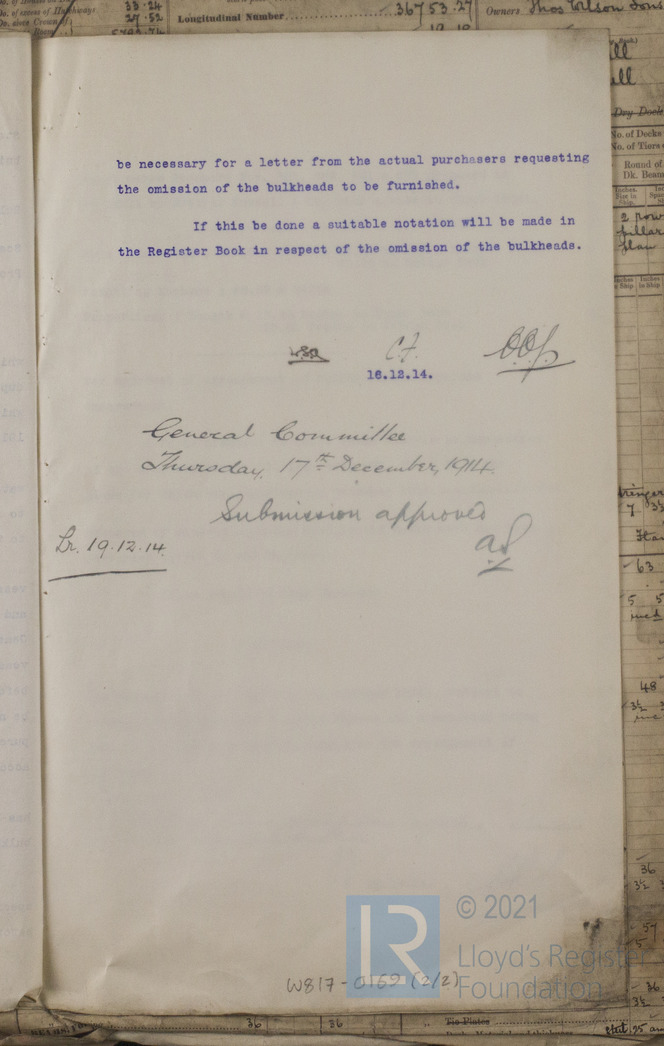 33.24
27.52
Longitudinal Number
36753.27
Owners Thos Wilson Sons
Dry Dock
No. of Decks
No. of Tiers
Round of
Dk. Beam
be necessary for a letter from the actual purchasers requesting
the omission of the bulkheads to be furnished.
If this be done a suitable notation will be made in
the Register Book in respect of the omission of the bulkheads.
16.12.14.
General Committee
Thursday, 17th December, 1914.
Submission approved
Lr. 19.12.14
63
48
36
57
36
W817-0159 (2/2)
© 2021
Lloyd's Register
Foundation
36
36
Tie Plates